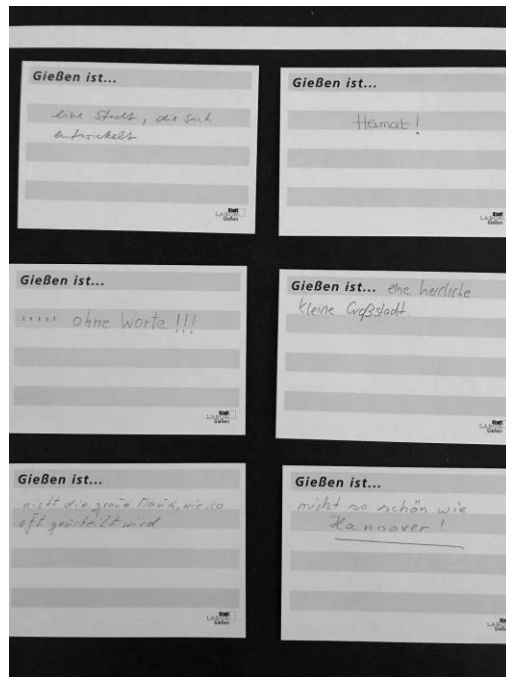 Gießen ist...
eine Stadt, die sich
entwickelt
Stadt
LABOR
Gießen
Gießen ist...
Hamat!
Stadt
LABOR
Gießen
Gießen ist...
..... ohne Worte!!!
Stadt
LABOR
Gießen
Gießen ist... eine herrliche
kleine Großstadt.
Stadt
LABOR
Gießen
Gießen ist...
nicht die graue Maus, wie so
oft geurteilt wird
Stadt
LABOR
Gießen
Gießen ist...
nicht so schön wie
Hannover!
Stadt
LABOR
Gießen